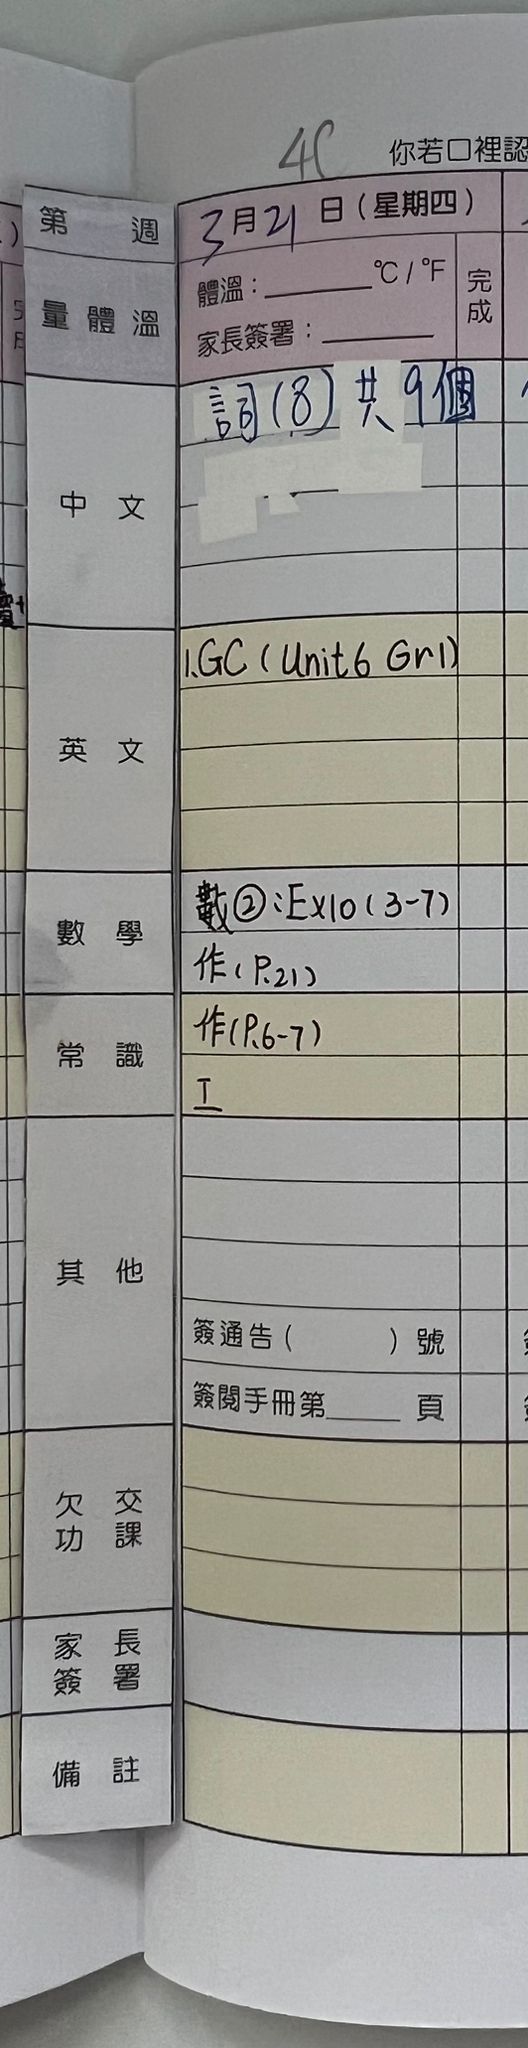 4C
你若口裡認
第 週
3月21日(星期四)
量體溫
體溫:______°C/°F
家長簽署:______
完成
中文
詞(8)共9個
英文
1.GC(Unit6 Gr1)
數學
數②:Ex10(3-7)
作(P.21)
常識
作(P.6-7)
工
其他
簽通告( )號
簽閱手冊第____頁
欠交功課
家長簽署
備註